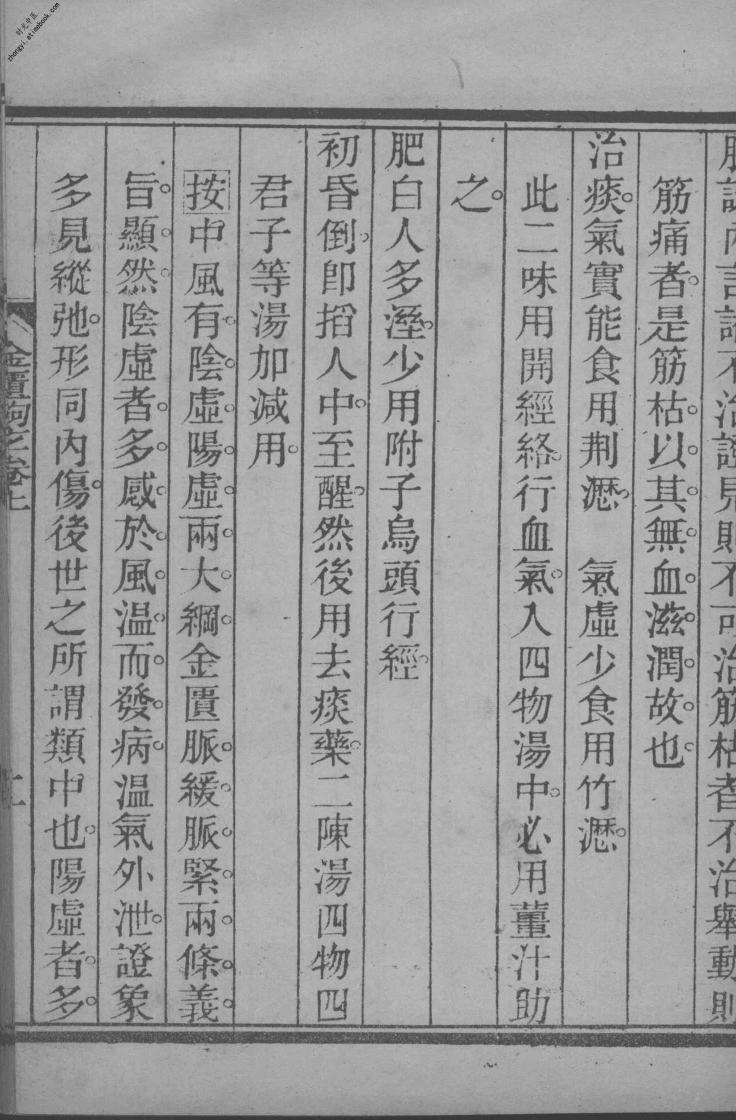 不治證見則不可治筋枯者不治舉動則
筋痛者是筋枯以其無血滋潤故也
治痰氣實能食用荆瀝　氣虛少食用竹瀝
此二味用開經絡行血氣入四物湯中必用薑汁助
之
肥白人多溼少用附子烏頭行經
初昏倒即搯人中至醒然後用去痰藥二陳湯四物四
君子等湯加減用
按中風有陰虛陽虛兩大綱金匱脈緩脈緊兩條義
旨顯然陰虛者多感於風溫而發病溫氣外泄證象
多見縱弛形同內傷後世之所謂類中也陽虛者多
金匱鉤玄卷上
時光中醫
zhongyi.etimebook.com